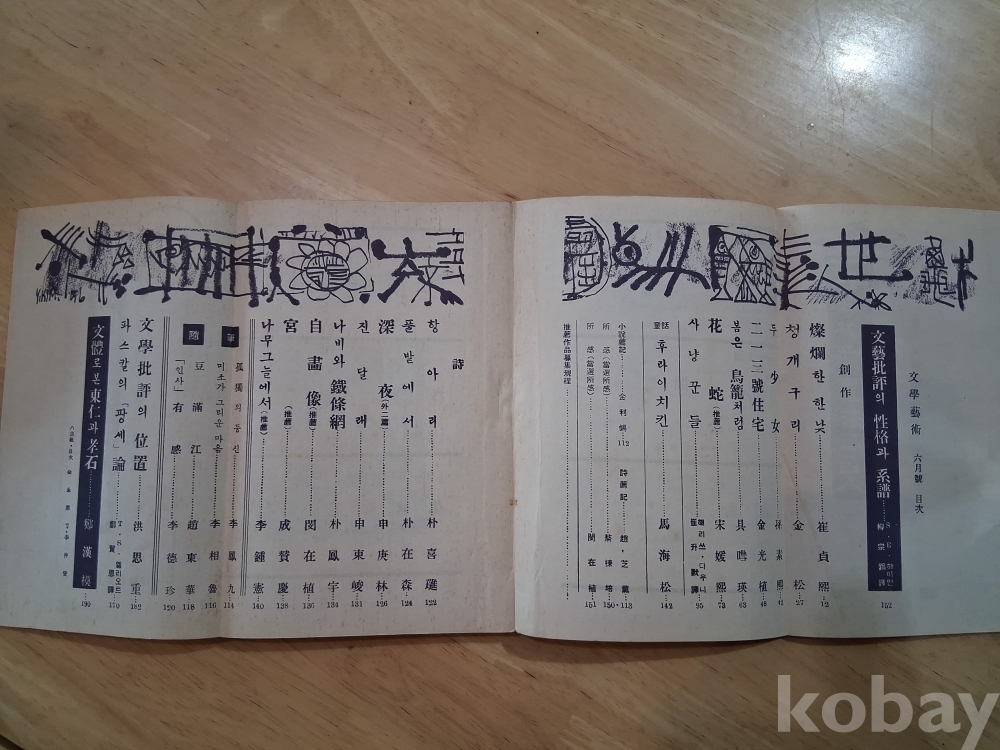 文學藝術 六月號 目次
文藝批評의 性格과 系譜……S・E・하이만 譯 152
創作
燦爛한 한낮……崔貞熙…12
청개구리……金松…27
두 少女……孫素熙…41
二一三號住宅……金光植…48
봄은 鳥籠처럼……具暳瑛…63
花蛇(推薦)……宋媛熙…73
사냥꾼들……헤리쓰・디우니 崔升默譯 95
童話 후라이치킨……馬海松…142
小說薦記……金利錫 112
詩薦記……趙芝薰…113
所感(當選所感)……蔡棟培…150
所感(當選所感)……閔在植…151
推薦作品募集規程
詩
항아리……朴喜璡…122
풀밭에서……朴在森…124
深夜(外二篇)……申庚林…126
진달래……申東峻…131
나비와 鐵條網……朴鳳宇…134
自畫像(推薦)……閔在植…136
宮(推薦)……成賛慶…138
나무그늘에서(推薦)……李鍾憲…140
隨筆
孤獨의 등신……李鳳九…114
미소가 그리운 마음……李相魯…116
豆滿江……趙東華…118
「인사」有感……李德珍…120
文學批評의 位置……洪思重…182
파스칼의「팡세」論……T・S・엘리오트 鄭賢思譯…170
文體로 본 東仁과 孝石……鄭漢模…190
kobay